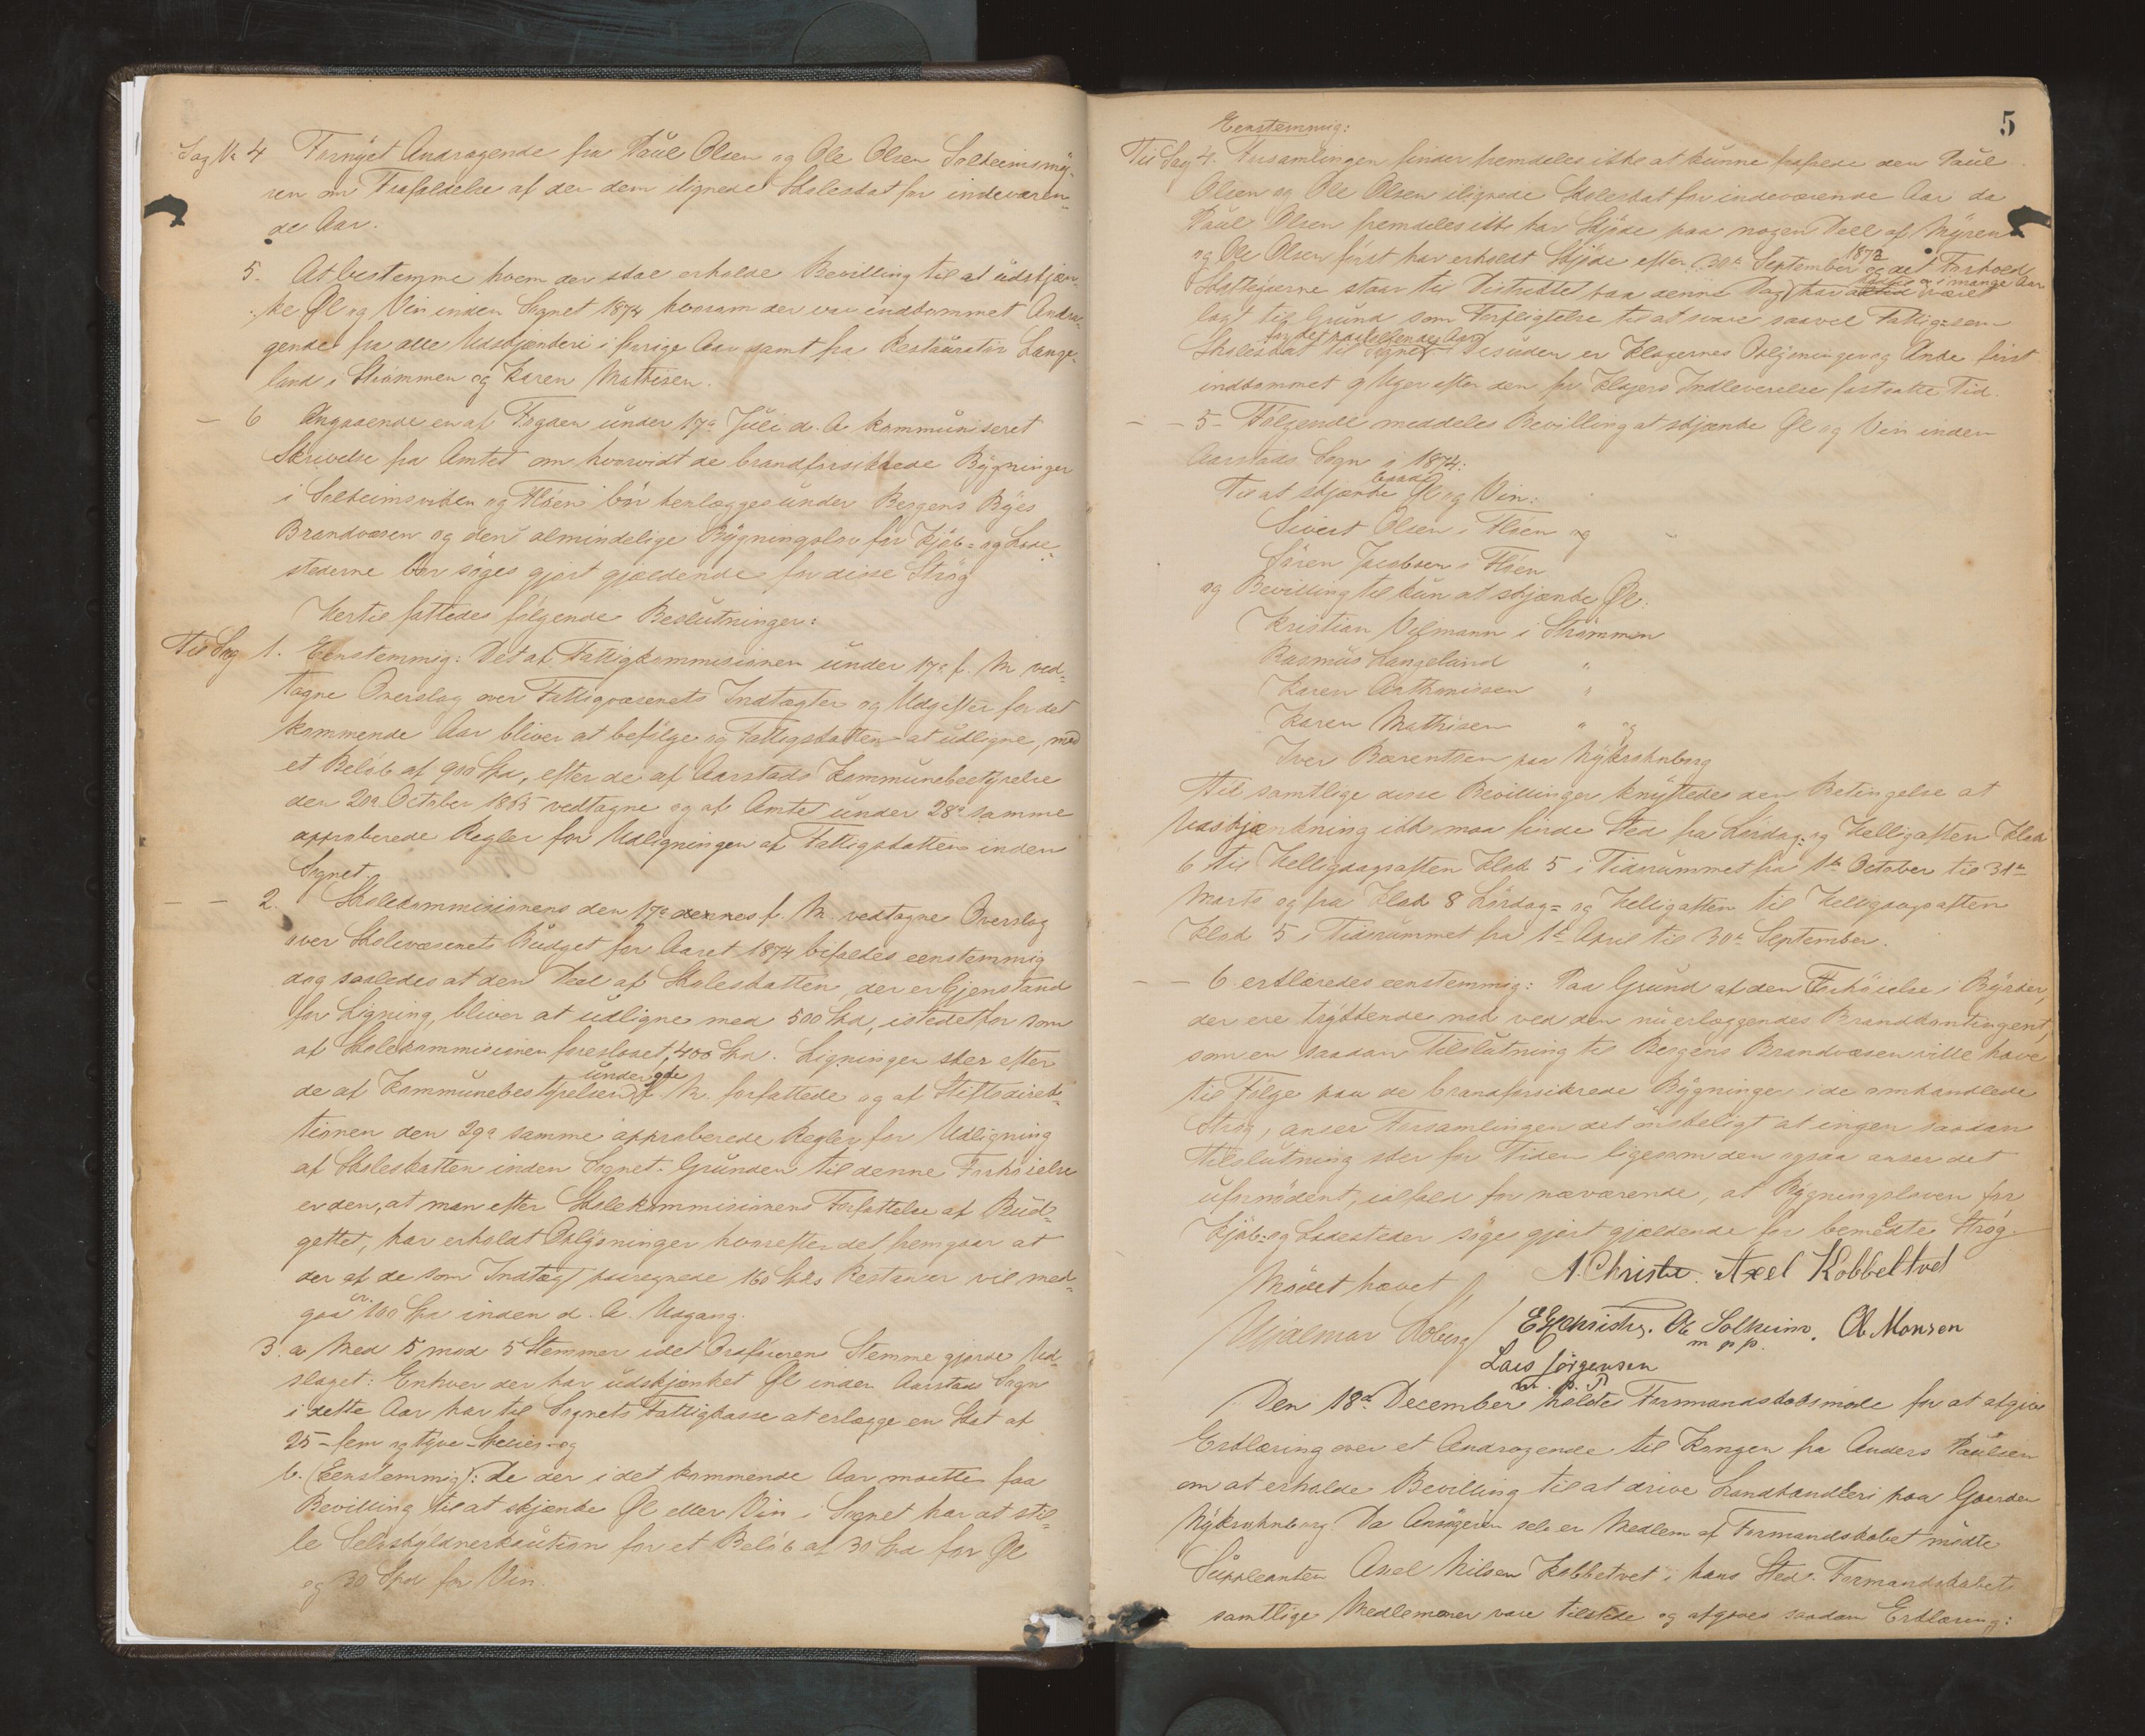 Sag No 4 Fornyet Andragende fra Paul Olsen og Ole Olsen Solheimsmy-
ren om Frafaldelse af den dem ilignede Skoleskat for indeværen-
de Aar.
5. At bestemme hvem der skal erholde Bevilling til at udskjæn-
ke Øl og Vin inden Sognet 1874 hvorom der var indkommet Andra-
gende fra alle Udskjænkere i forrige Aar samt fra Restauratør Lange-
land i Strømmen og Karen Mathisen.
- 6 Angaaende en af Fogden under 17de Juli d. A. kommuniseret
Skrivelse fra Amtet om hvorvidt de brandforsikrede Bygninger
i Solheimsviken og Fløen bør henlægges under Bergens Byes
Brandvæsen og den almindelige Bygningslov for Kjøb- og Lade-
stederne bør søges gjort gjældende for disse Strøg
Hertil fattedes følgende Beslutninger:
Til Sag 1. Eenstemmig: Det af Fattigkommisionen under 17de f. M. ved-
tagne Overslag over Fattigvæsenets Indtægter og Udgifter for det
kommende Aar bliver at befølge og Fattigskatten at udligne, med
et Beløb af 900 Spd, efter de af Aarstads Kommunebestyrelse
den 20de October 1865 vedtagne og af Amtet under 28de samme
approberede Regler for Udligningen af Fattigskatten inden
Sognet.
- - 2. Skolekommisionens den 17de dennes f. M. vedtagne Overslag
over Skolevæsenets Budget for Aaret 1874 befoldes eenstemmig
dog saaledes at den Deel af Skoleskatten, der er Gjenstand
for Ligning, bliver at udligne med 500 Spd, istedetfor som
af Skolekommisionen foreslaaet, 400 Spd. Ligningen sker efter
under 9de
de af Kommunebestyrelsen f. M. forfattede og af Stiftsdirek-
tionen den 29de samme approberede Regler for Udligning
af Skoleskatten inden Sognet. Grunden til denne Forhøielse
er den, at man efter Skolekommisionens Forfattelse af Bud-
gettet, har erholdt Oplysninger hvorefter det fremgaar at
der af de som Indtægt paaregnede 160 Spds Restancer vil med-
cr.
gaa 100 Spd inden d. A. Udgang.
3. a Med 5 mod 5 Stemmer idet Ordførerens Stemme gjorde Ud-
slaget: Enhver der har udskjænket Øl inden Aarstad Sogn
i dette Aar har til Sognets Fattigkasse at erlægge en Skat af
25 - fem og tyve - Species - og
b. (Eenstemmig): De der i det kommende Aar maatte faa
Bevilling til at skjænke Øl eller Vin i Sognet har at stil-
le Selvskyldnerkaution for et Beløb af 30 Spd for Øl
og 30 Spd for Vin.
5
Eenstemmig:
Til Sag 4. Forsamlingen finder fremdeles ikke at kunne frafalde den Paul
Olsen og Ole Olsen ilignede Skoleskat for indeværende Aar da
Paul Olsen fremdeles ikke har Skjøde paa nogen Deel af Myren
1872
og Ole Olsen først har erholdt Skjøde efter 30te September og det Forhold
i mange Aar
Skatyderne staar til Distriktet paa denne Dag har været
lagt til Grund som Forpligtelse til at svare saavel Fattig- som
for det paafølgende Aar
Skoleskat til Sognet. Desuden er Klagernes Oplysninger og Anke først
indkommet 9 Uger efter den for Klagers Indleverelse fastsatte Tid.
- - 5 - Følgende meddeles Bevilling at skjænke Øl og Vin inden
Aarstads Sogn i 1874:
baade
Til at skjænke Øl og Vin:
Sivert Olsen i Fløen og
Søren Jacobsen i Fløen
og Bevilling til kun at skjænke Øl:
Kristian Vilmann i Strømmen
Rasmus Langeland "
Karen Anthonissen "
Karen Mathisen " og
Iver Bærentsen paa Nykrohnborg
Til samtlige disse Bevillinger knyttedes den Betingelse at
Udskjænkning ikke maa finde Sted fra Lørdag- og Helligaften Klok
6 til Helligdagsaften Klok 5 i Tidsrummet fra 1ste October til 31te
Marts og fra Klok 8 Lørdag- og Helligaften til Helligdagsaften
Klok 5 i Tidsrummet fra 1ste April til 30te September.
- - 6 erklæredes eenstemmig: Paa Grund af den Forhøielse i Byrder,
der ere trykkende nok ved den nu erlæggendes Brandkontingent,
som en saadan Tilslutning til Bergens Brandvæsen ville have
til Følge paa de brandforsikrede Bygninger i de omhandlede
Strøg, anser Forsamlingen det ønskeligt at ingen saadan
Tilslutning sker for Tiden ligesom den ogsaa anser det
ufornødent, ialfald for nærværende, at Bygningsloven for
Kjøb- og Ladesteder søges gjort gjældende for bemeldte Strøg
Mødet hævet
A. Christie. Axel Kobbeltvet
Hjalmar Moberg E Christie. Ole Solheim. O Monsen
m p p.
Lars Jørgensen
m. p. P
Den 18de December holdtes Formandskabsmøde for at afgive
Erklæring over et Andragende til Kongen fra Anders Paulsen
om at erholde Bevilling til at drive Landhandleri paa Gaarden
Nykrohnborg. Da Ansøgeren selv er Medlem af Formandskabet mødte
Suppleanten Axel Nilsen Kobbeltvet i hans Sted. Formandskabets
samtlige Medlemmer vare tilstede og afgaves saadan Erklæring: